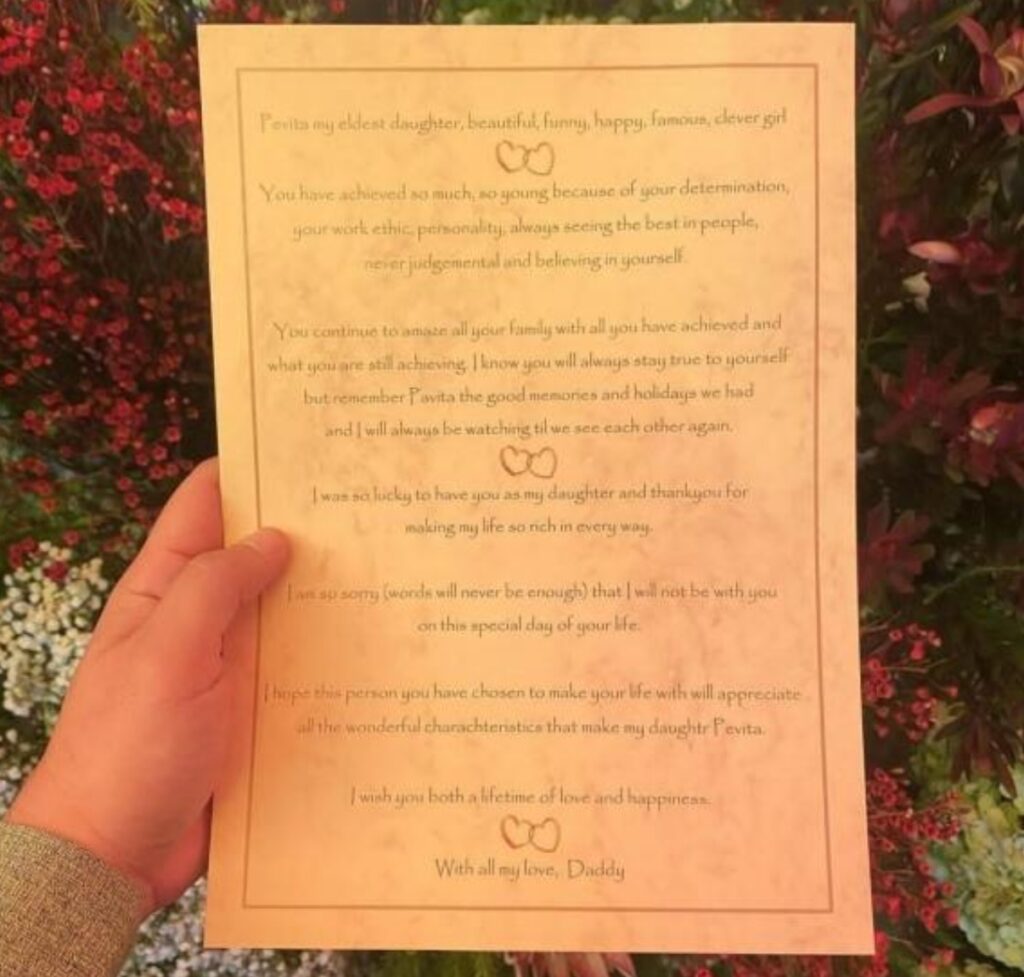 Pevita my eldest daughter, beautiful, funny, happy, famous, clever girl
You have achieved so much, so young because of your determination,
your work ethic, personality, always seeing the best in people,
never judgemental and believing in yourself.
You continue to amaze all your family with all you have achieved and
what you are still achieving. I know you will always stay true to yourself
but remember Pavita the good memories and holidays we had
and I will always be watching til we see each other again.
I was so lucky to have you as my daughter and thankyou for
making my life so rich in every way.
I am so sorry (words will never be enough) that I will not be with you
on this special day of your life.
I hope this person you have chosen to make your life with will appreciate
all the wonderful charachteristics that make my daughtr Pevita.
I wish you both a lifetime of love and happiness.
With all my love, Daddy